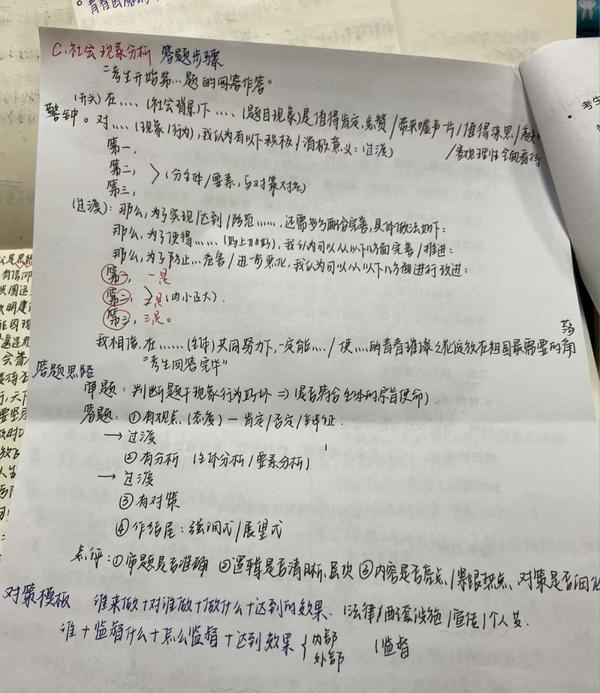 C.社会现象分析 答题步骤
"考生开始第…题的回答作答"
(开头)在….(社会背景)下….(题目现象)是值得肯定、点赞/带来嘘声一片/值得深思/敲
警钟。对….(现象/行为),我认为有以下积极/消极意义:(过渡) /客观理性全面看待
第一,
第二, (分主体/要素,与对策对应)
第三,
(过渡):那么,为了实现/达到/防范……,还需多多配合完善,具体做法如下:
那么,为了使得……(好上加好),我认为可以从以下几方面完善/推进:
那么,为了防止…危害/进一步恶化,我认为可以从以下几方面进行改进:
第一, 一是
第二, 二是(由小至大).
第三, 三是。
我相信,在……(主体)共同努力下,一定能…/使…的青春璀璨之花绽放在祖国最需要的角
落
"考生回答完毕"
答题思路
审题:判断题干现象行为好坏⇒(是否符合主体的宗旨使命)
答题:①有观点(态度)一肯定/否定/辩证.
→过渡
②有分析(主体分析/要素分析)
→过渡
③有对策
④作结尾:强调式/展望式
点评:①审题是否准确 ②逻辑是否清晰、层次 ③内容是否亮点/紧跟热点、对策是否细化
对策模板 谁来做+对谁做+做什么+达到的效果. (法律/配套设施/宣传/个人等.
谁+监督什么+怎么监督+达到效果{内部
外部 (监督
考生